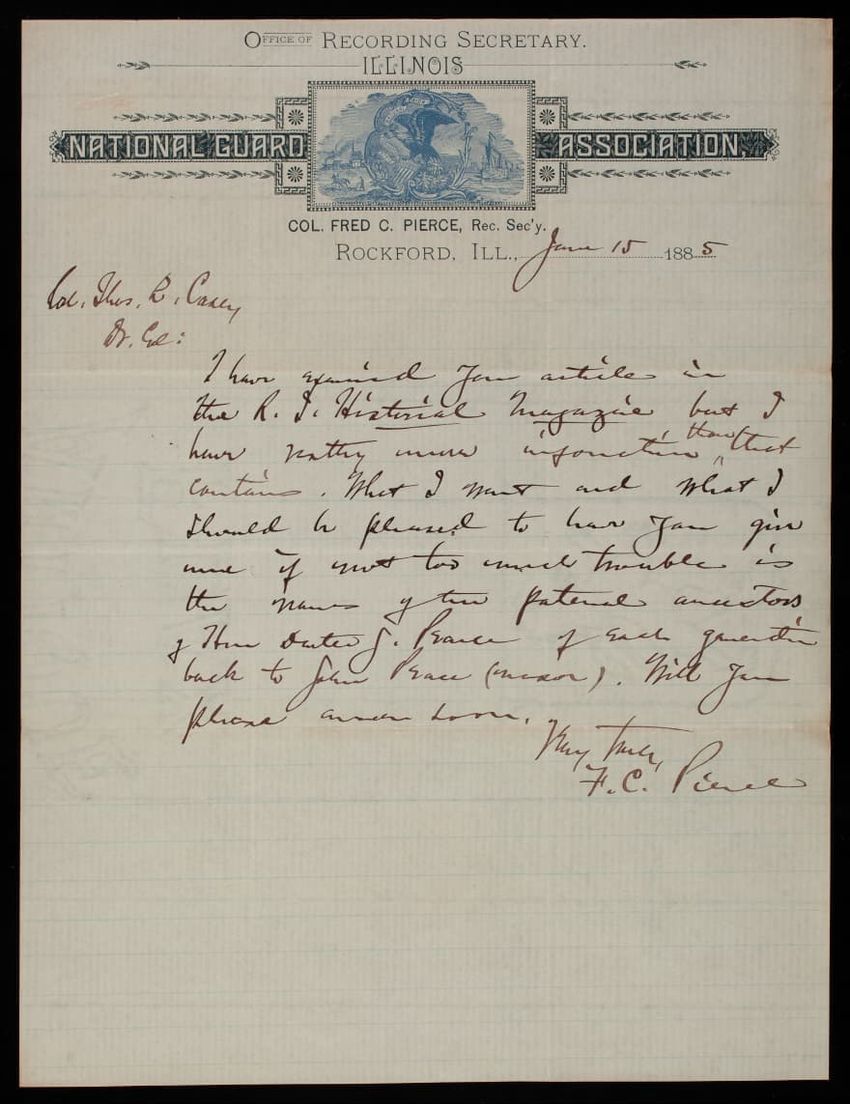 OFFICE OF RECORDING SECRETARY.
ILLINOIS
NATIONAL GUARD ASSOCIATION.
COL. FRED C. PIERCE, Rec. Sec'y.
ROCKFORD, ILL., June 15 1885
Col. Thos. L. Casey,
Dr. Col:
I have examined your article in
the R. I. Historical Magazine but I
have nothing more information than that
contains. What I want and what I
should be pleased to have you give
me if not too much trouble is
the names of the paternal ancestors
of Hon Dutee J. Pearce of each generation
back to John Pearce (mason). Will you
please answer soon.
Very truly,
F. C. Pierce